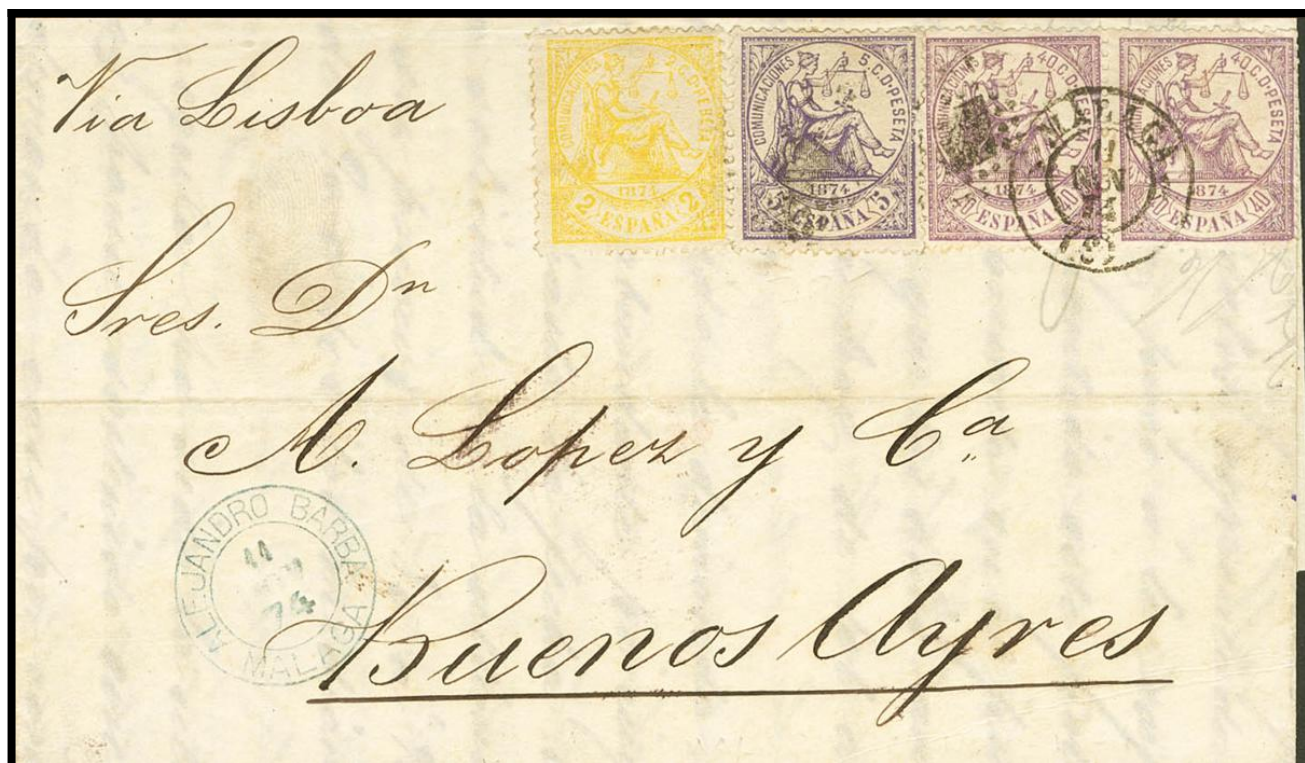 Via Lisboa
COMUNICACIONES 2 C. DE PESETA
1874
2 ESPAÑA 2
COMUNICACIONES 5 C. DE PESETA
1874
5 ESPAÑA 5
COMUNICACIONES 40 C. DE PESETA
1874
40 ESPAÑA 40
COMUNICACIONES 40 C. DE PESETA
1874
40 ESPAÑA 40
MALAGA
11
74
Sres. Dn
M. Lopez y Ca.
ALEJANDRO BARBA
11
74
MALAGA
Buenos Ayres